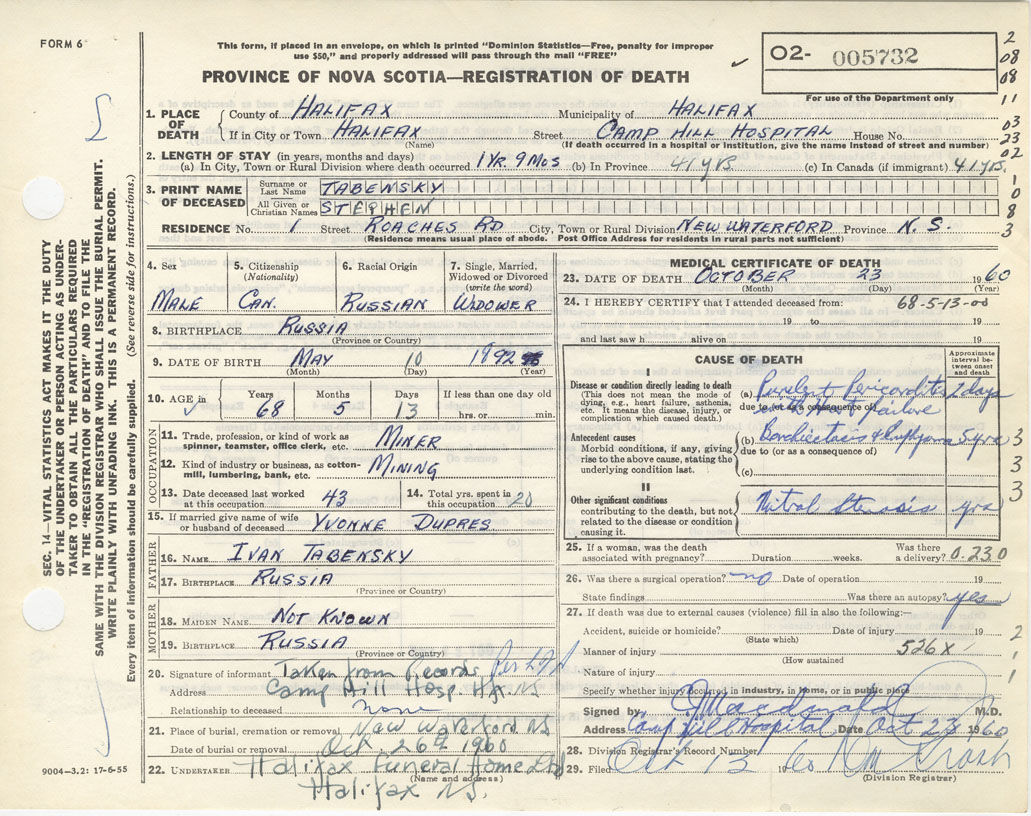 FORM 6
This form, if placed in an envelope, on which is printed "Dominion Statistics—Free, penalty for improper
use $50," and properly addressed will pass through the mail "FREE"
PROVINCE OF NOVA SCOTIA—REGISTRATION OF DEATH
02- 005732
For use of the Department only
2
08
08
11
03
23
02
1
0
8
3
SEC. 14—VITAL STATISTICS ACT MAKES IT THE DUTY
OF THE UNDERTAKER OR PERSON ACTING AS UNDER-
TAKER TO OBTAIN ALL THE PARTICULARS REQUIRED
IN THE "REGISTRATION OF DEATH" AND TO FILE THE
SAME WITH THE DIVISION REGISTRAR WHO SHALL ISSUE THE BURIAL PERMIT.
WRITE PLAINLY WITH UNFADING INK. THIS IS A PERMANENT RECORD.
Every item of information should be carefully supplied. (See reverse side for instructions.)
1. PLACE OF DEATH
County of HALIFAX Municipality of HALIFAX
If in City or Town HALIFAX Street CAMP HILL HOSPITAL House No.
(Name) (If death occurred in a hospital or Institution, give the name instead of street and number)
2. LENGTH OF STAY (in years, months and days)
(a) In City, Town or Rural Division where death occurred 1 YR. 9 MOS (b) In Province 41 YRS (c) In Canada (if immigrant) 41 YRS.
3. PRINT NAME OF DECEASED
Surname or Last Name TABENSKY
All Given or Christian Names STEPHEN
RESIDENCE No. 1 Street ROACHES RD City, Town or Rural Division NEW WATERFORD Province N. S.
(Residence means usual place of abode. Post Office Address for residents in rural parts not sufficient)
4. Sex
MALE
5. Citizenship (Nationality)
CAN.
6. Racial Origin
RUSSIAN
7. Single, Married, Widowed or Divorced (write the word)
WIDOWER
8. BIRTHPLACE RUSSIA
(Province or Country)
9. DATE OF BIRTH MAY 10 1892
(Month) (Day) (Year)
10. AGE in Years Months Days If less than one day old
68 5 13 hrs. or min.
OCCUPATION
11. Trade, profession, or kind of work as spinner, teamster, office clerk, etc. MINER
12. Kind of industry or business, as cotton-mill, lumbering, bank, etc. MINING
13. Date deceased last worked at this occupation 43
14. Total yrs. spent in this occupation 20
15. If married give name of wife or husband of deceased YVONNE DUPRES
FATHER
16. NAME IVAN TABENSKY
17. BIRTHPLACE RUSSIA
(Province or Country)
MOTHER
18. MAIDEN NAME NOT KNOWN
19. BIRTHPLACE RUSSIA
(Province or Country)
20. Signature of informant Taken from Records
Address Camp Hill Hosp. Hfx. N.S
Relationship to deceased none
21. Place of burial, cremation or removal New Waterford NS
Date of burial or removal Oct 26th 1960
22. UNDERTAKER Halifax Funeral Home Ltd
(Name and address)
Halifax N.S.
9004—3.2: 17-6-55
MEDICAL CERTIFICATE OF DEATH
23. DATE OF DEATH OCTOBER 23 1960
(Month) (Day) (Year)
24. I HEREBY CERTIFY that I attended deceased from: 68-5-13-00
19 to 19
and last saw h alive on 19
CAUSE OF DEATH
Approximate interval between onset and death
I
Disease or condition directly leading to death
(This does not mean the mode of dying, e.g., heart failure, asthenia, etc. It means the disease, injury, or complication which caused death.)
(a) Purulent Pericarditis 2 days
due to (or as a consequence of)
failure
Antecedent causes
Morbid conditions, if any, giving rise to the above cause, stating the underlying condition last.
(b) Bronchiectasis & Emphysema 5 yrs 3
due to (or as a consequence of)
3
(c)
3
II
Other significant conditions contributing to the death, but not related to the disease or condition causing it.
Mitral Stenosis yrs
25. If a woman, was the death associated with pregnancy? Duration weeks. Was there a delivery? 0.230
26. Was there a surgical operation? no Date of operation 19
State findings Was there an autopsy? yes
27. If death was due to external causes (violence) fill in also the following:—
Accident, suicide or homicide? Date of injury 19 2
(State which)
Manner of injury 526 X 1
(How sustained)
Nature of injury 1
Specify whether injury occurred in industry, in home, or in public place
Signed by Macdonald M.D.
Address Camp Hill Hospital Date Oct 23 1960
28. Division Registrar's Record Number
29. Filed Oct 13 1960
(Division Registrar)